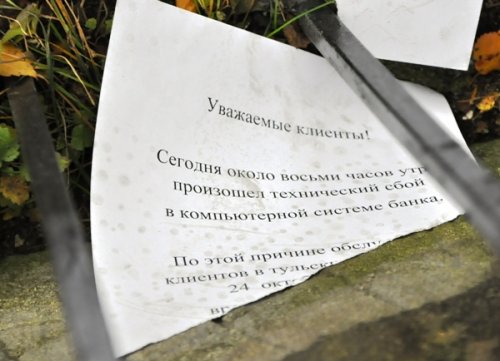 Уважаемые клиенты!
Сегодня около восьми часов утр
произошел технический сбой
в компьютерной системе банка,
По этой причине обслу
клиентов в тульск
24 окт
вр